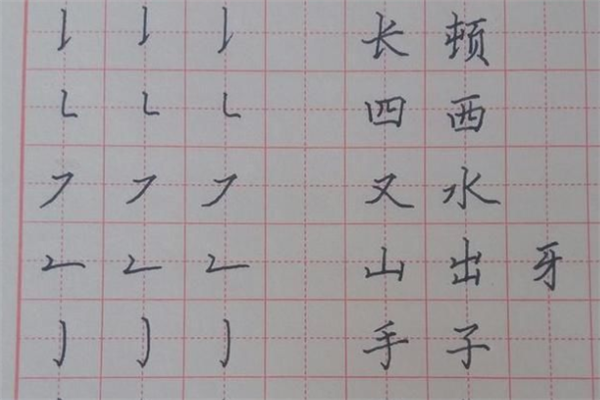 𠄌 𠄌 𠄌 长 顿
㇄ ㇄ ㇄ 四 西
㇇ ㇇ ㇇ 又 水
㇗ ㇗ ㇗ 山 出 牙
亅 亅 亅 手 子